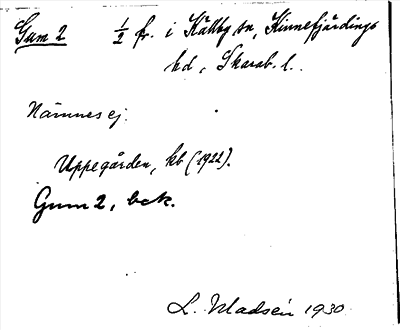 Gum 2 1/2 fr. i Källby sn, Kinnefjärdings
hd, Skarab. l.
Nämnes ej.
Uppegården, kb (1922).
Gum 2, bek.
L. Madsén 1930